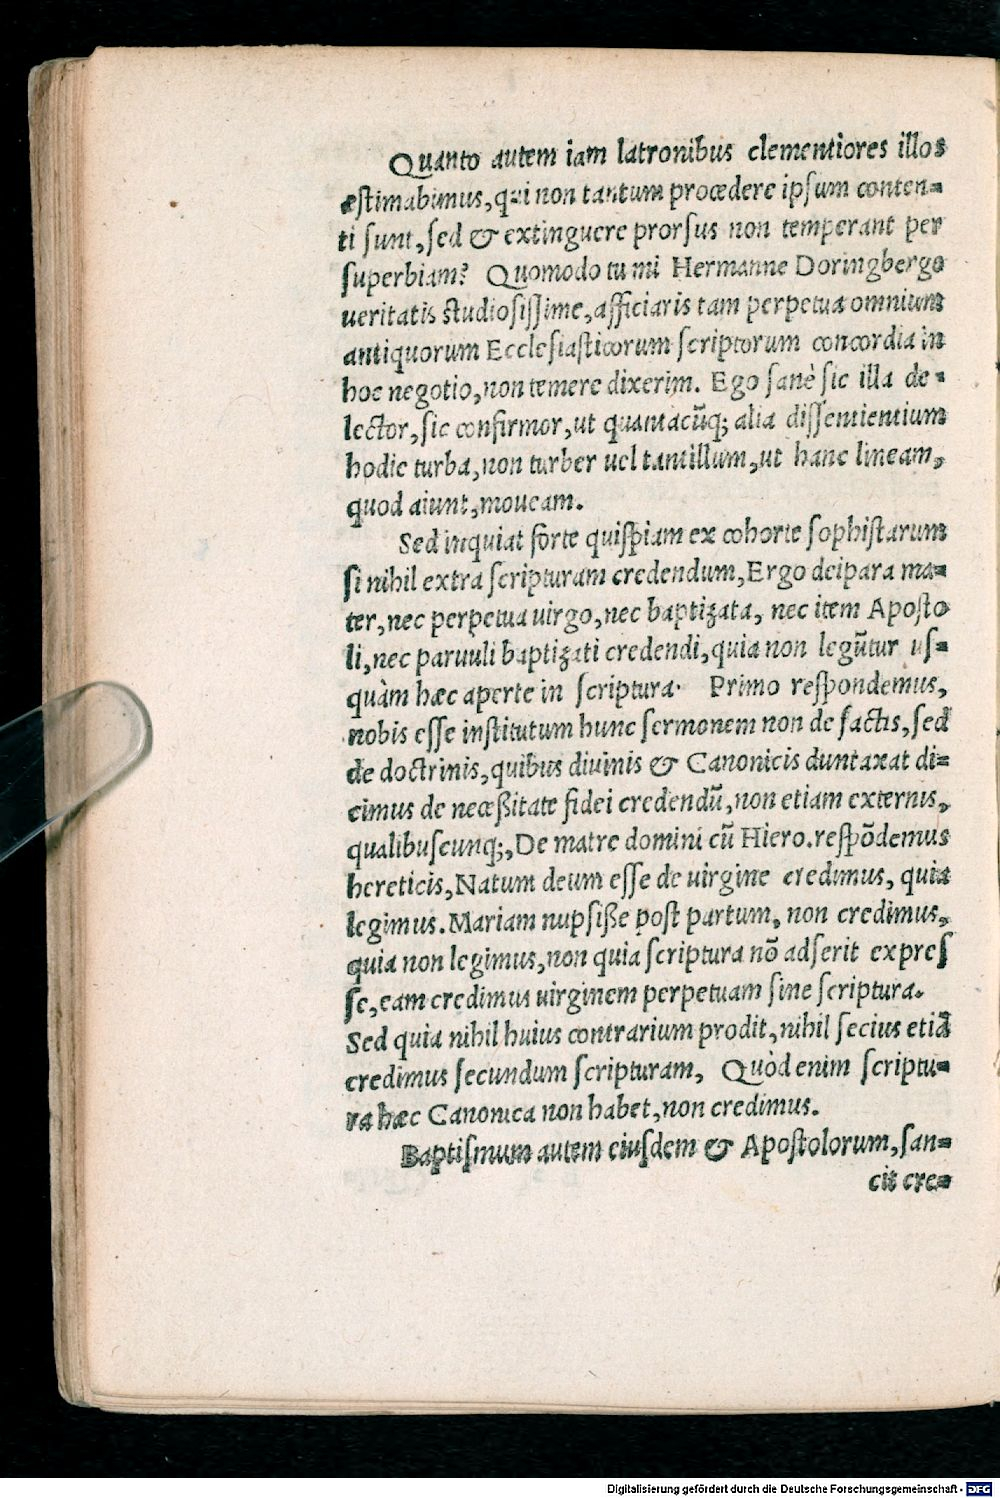 Quanto autem iam latronibus clementiores illos
estimabimus, qui non tantum procedere ipsum conten⸗
ti sunt, sed & extinguere prorsus non temperant per
superbiam? Quomodo tu mi Hermanne Doringbergo
ueritatis studiosissime, afficiaris tam perpetua omnium
antiquorum Ecclesiasticorum scriptorum concordia in
hoc negotio, non temere dixerim. Ego sanè sic illa de⸗
lector, sic confirmor, ut quantacūq; alia dissentientium
hodie turba, non turber uel tantillum, ut hanc lineam,
quod aiunt, moueam.
Sed inquiat forte quispiam ex cohorte sophistarum
si nihil extra scripturam credendum, Ergo deipara ma⸗
ter, nec perpetua uirgo, nec baptizata, nec item Aposto
li, nec paruuli baptizati credendi, quia non legūtur us⸗
quàm hæc aperte in scriptura. Primo respondemus,
nobis esse institutum hunc sermonem non de factis, sed
de doctrinis, quibus diuinis & Canonicis duntaxat di⸗
cimus de necessitate fidei credendū, non etiam externis,
qualibuscunq;, De matre domini cū Hiero. respōdemus
hereticis, Natum deum esse de uirgine credimus, quia
legimus. Mariam nupsisse post partum, non credimus,
quia non legimus, non quia scriptura nō adserit expres
se, eam credimus uirginem perpetuam sine scriptura.
Sed quia nihil huius contrarium prodit, nihil secius etiā
credimus secundum scripturam, Quòd enim scriptu⸗
ra hæc Canonica non habet, non credimus.
Baptismum autem eiusdem & Apostolorum, san⸗
cit cre⸗
Digitalisierung gefördert durch die Deutsche Forschungsgemeinschaft - DFG